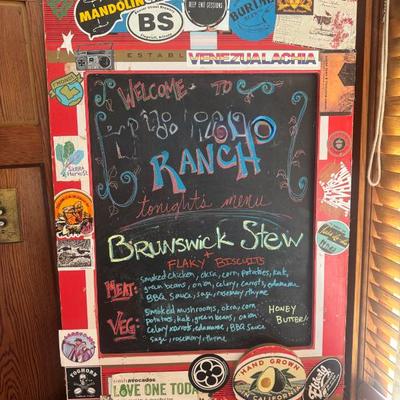 MANDOLIN
BS
DEEP END SESSIONS
ESTABL
VENEZUALACHIA
WELCOME TO
RANCH
tonights menu
BRUNSWICK STEW
+
FLAKY BISCUITS
MEAT: smoked chicken, okra, corn, potatoes, kale,
green beans, onion, celery, carrots, edamame
BBQ Sauce, sage, rosemary, thyme
VEG: Smoked mushrooms, okra, corn
potatoes, kale, green beans, onion
celery, carrots, edamame, BBQ sauce
sage, rosemary, thyme
HONEY
BUTTER!
Sierra
Harvest
FOGHORN
avocados
LOVE ONE TODAY
HAND GROWN
IN CALIFORNIA